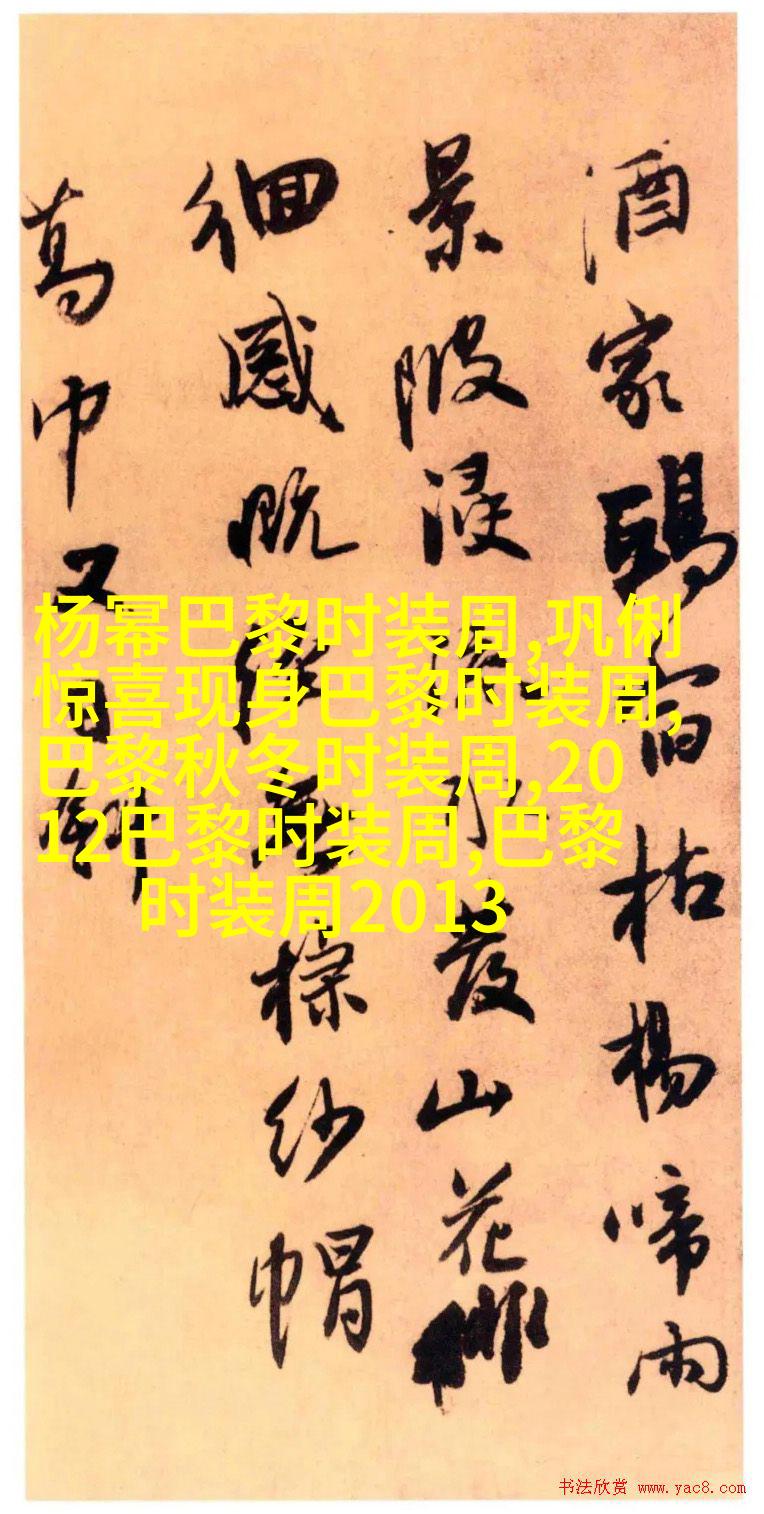 酒家宿枯楊啼雨
景陂水發山花徘
徊感慨棕紗帽
葛巾又自斟
杨幂巴黎时装周,巩俐
惊喜现身巴黎时装周,
巴黎秋冬时装周,20
12巴黎时装周,巴黎
时装周2013
书法欣赏 www.yac8.com